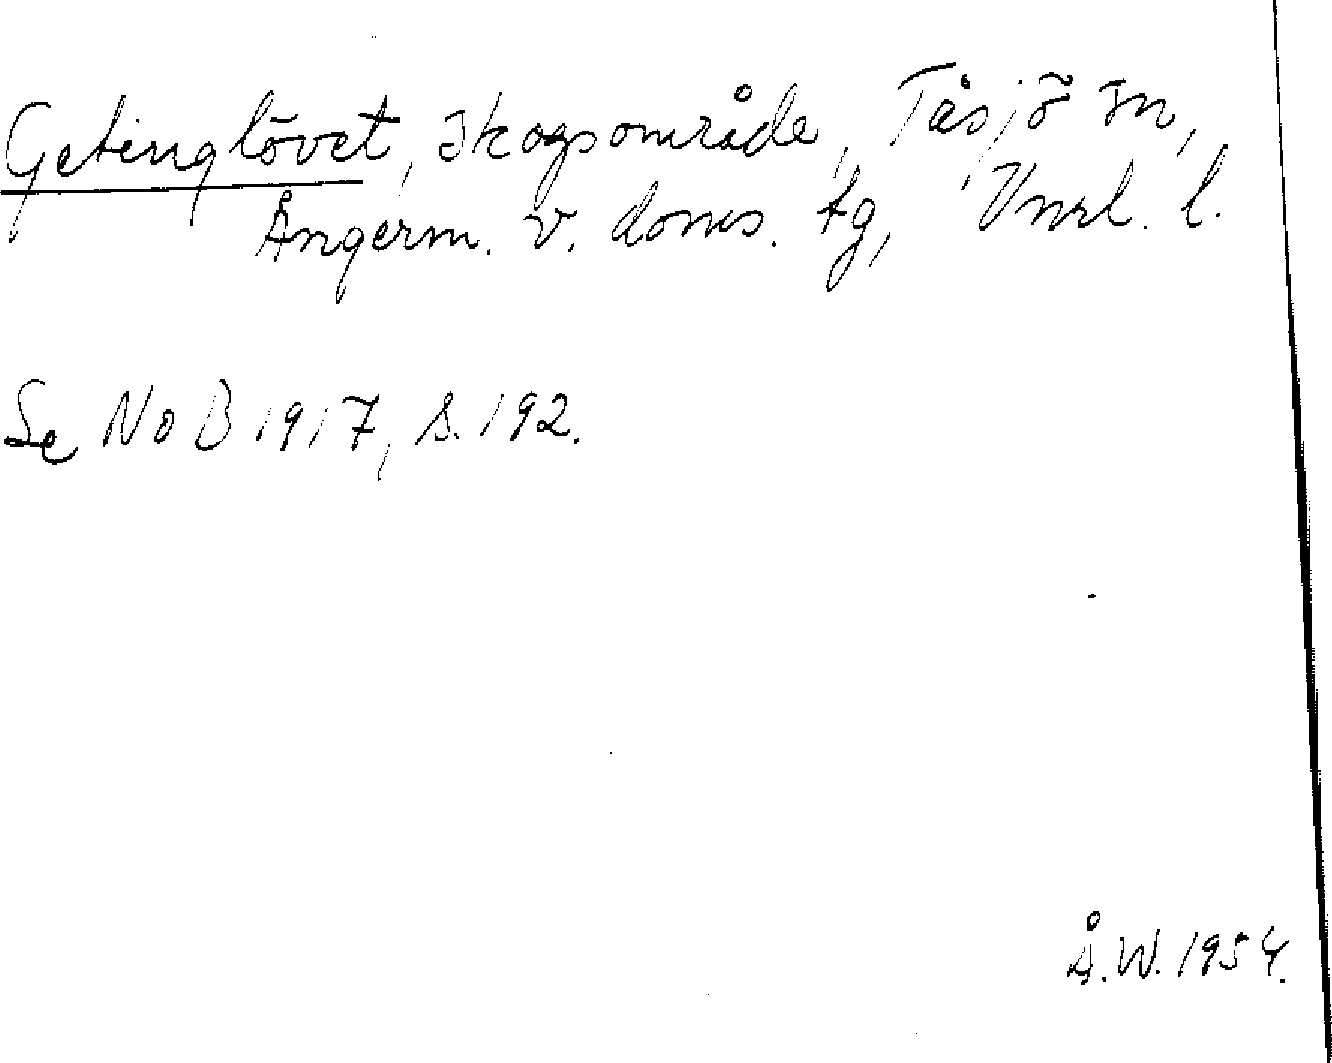 Getinglövet, skogsområde, Tåsjö sn,
Ångerm. v. doms. tg, Vnrl. l.
Se NoB 1917, s. 192.
Å.W. 1954.